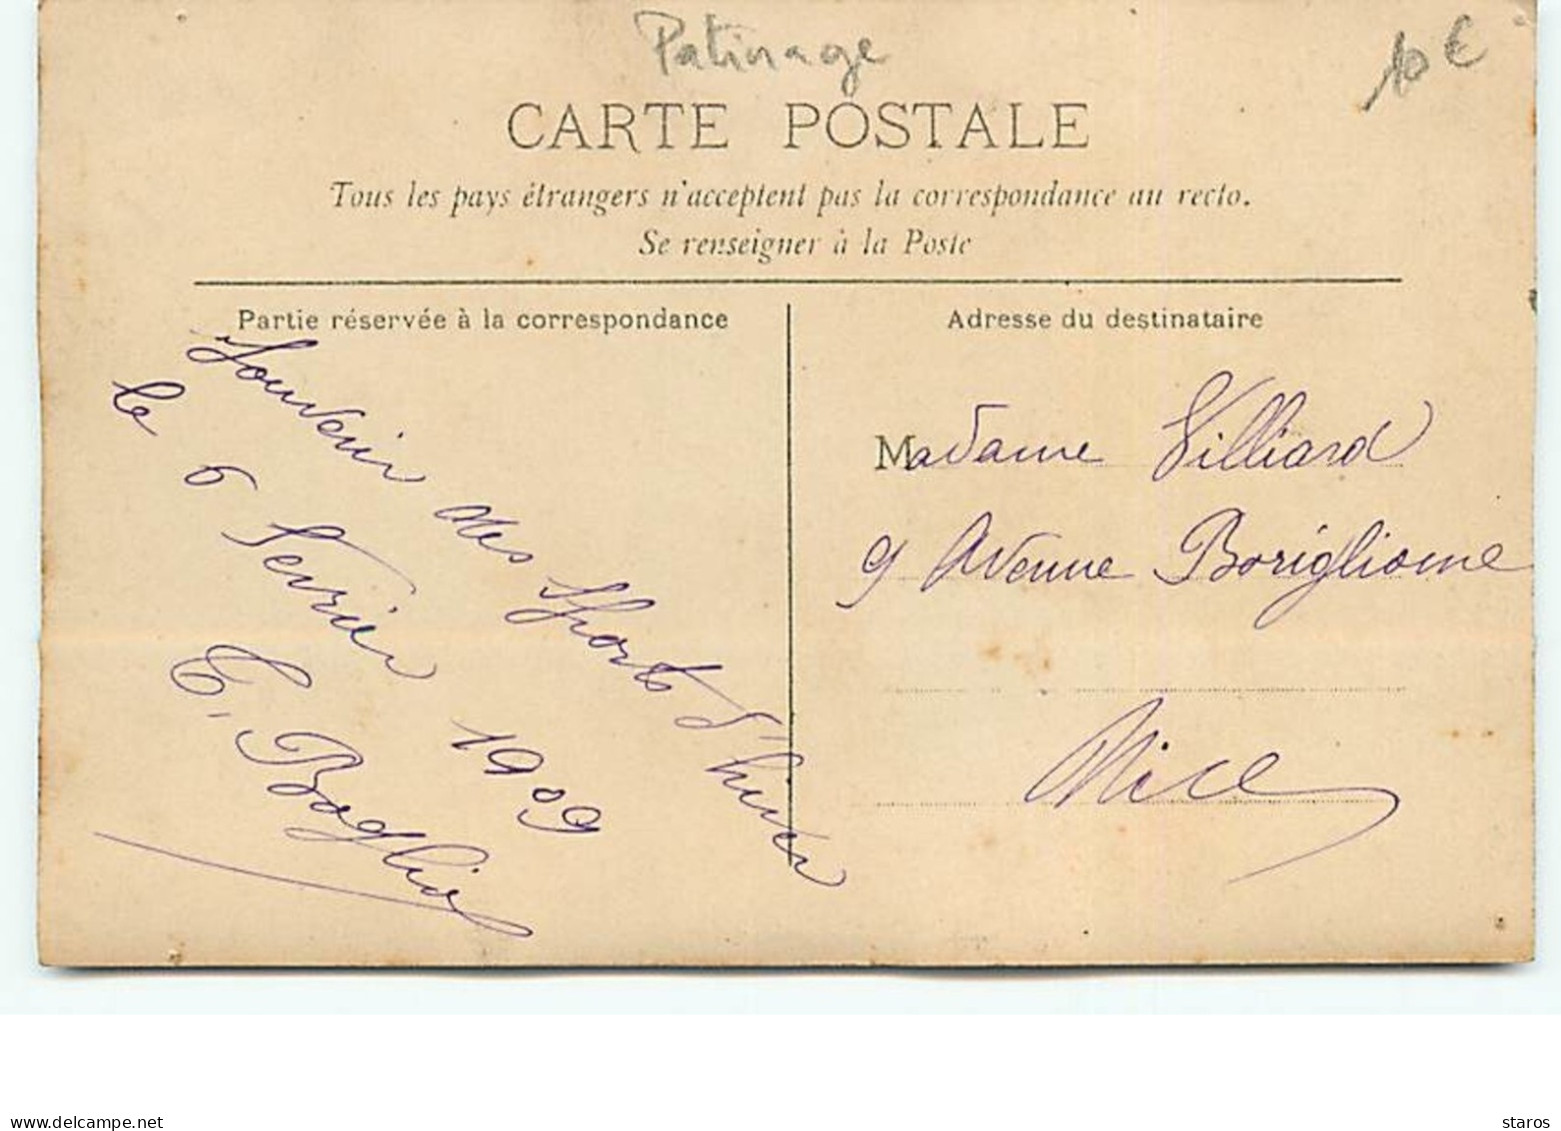 Patinage
10 €
CARTE POSTALE
Tous les pays étrangers n'acceptent pas la correspondance au recto.
Se renseigner à la Poste
Partie réservée à la correspondance
Souvenir des Sports d'hiver
le 6 Fevrier 1909
Adresse du destinataire
Madame Villiard
9 Avenue Borriglione
Nice
www.delcampe.net
staros